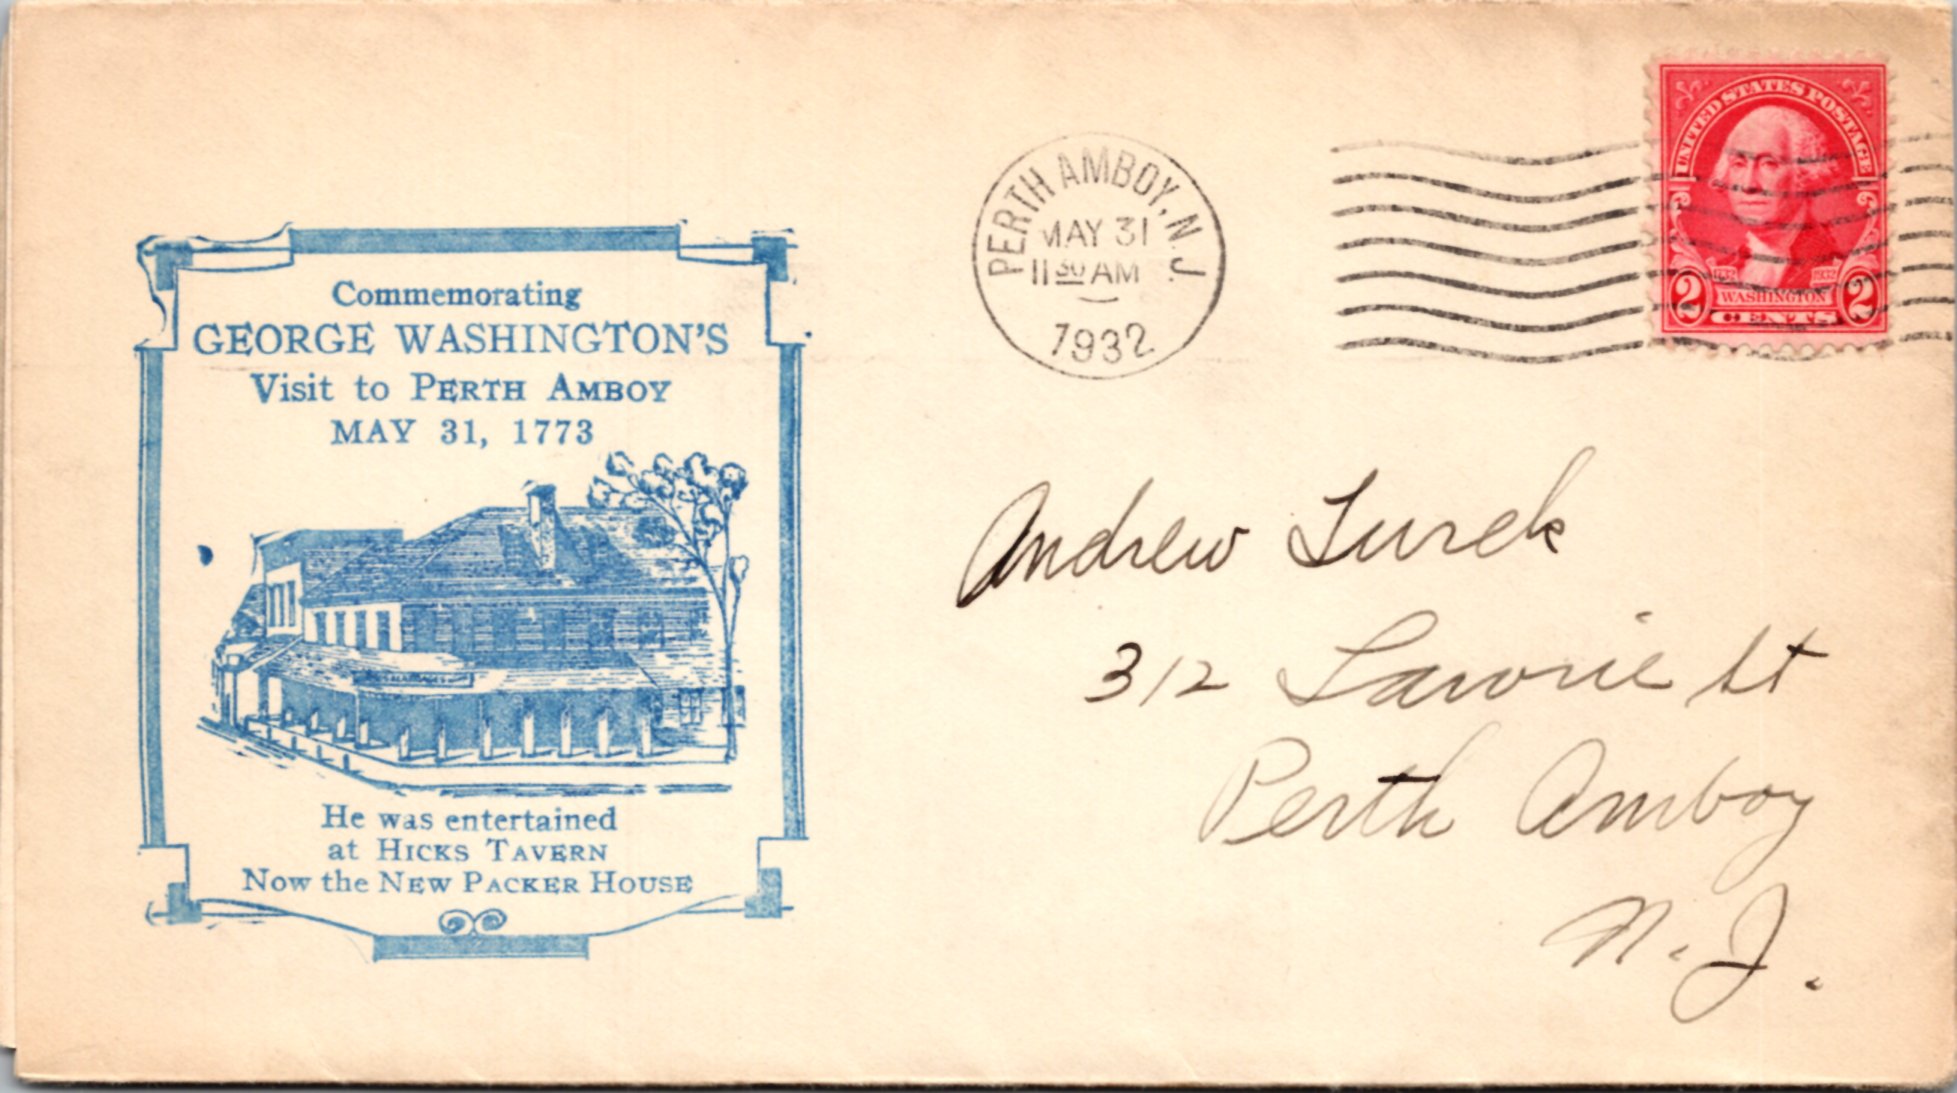 Commemorating
GEORGE WASHINGTON'S
Visit to PERTH AMBOY
MAY 31, 1773
He was entertained
at HICKS TAVERN
Now the NEW PACKER HOUSE
PERTH AMBOY, N.J.
MAY 31
11 30 AM
1932
UNITED STATES POSTAGE
1732 1932
2 WASHINGTON 2
CENTS
Andrew Turek
312 Lawrie St
Perth Amboy
N. J.